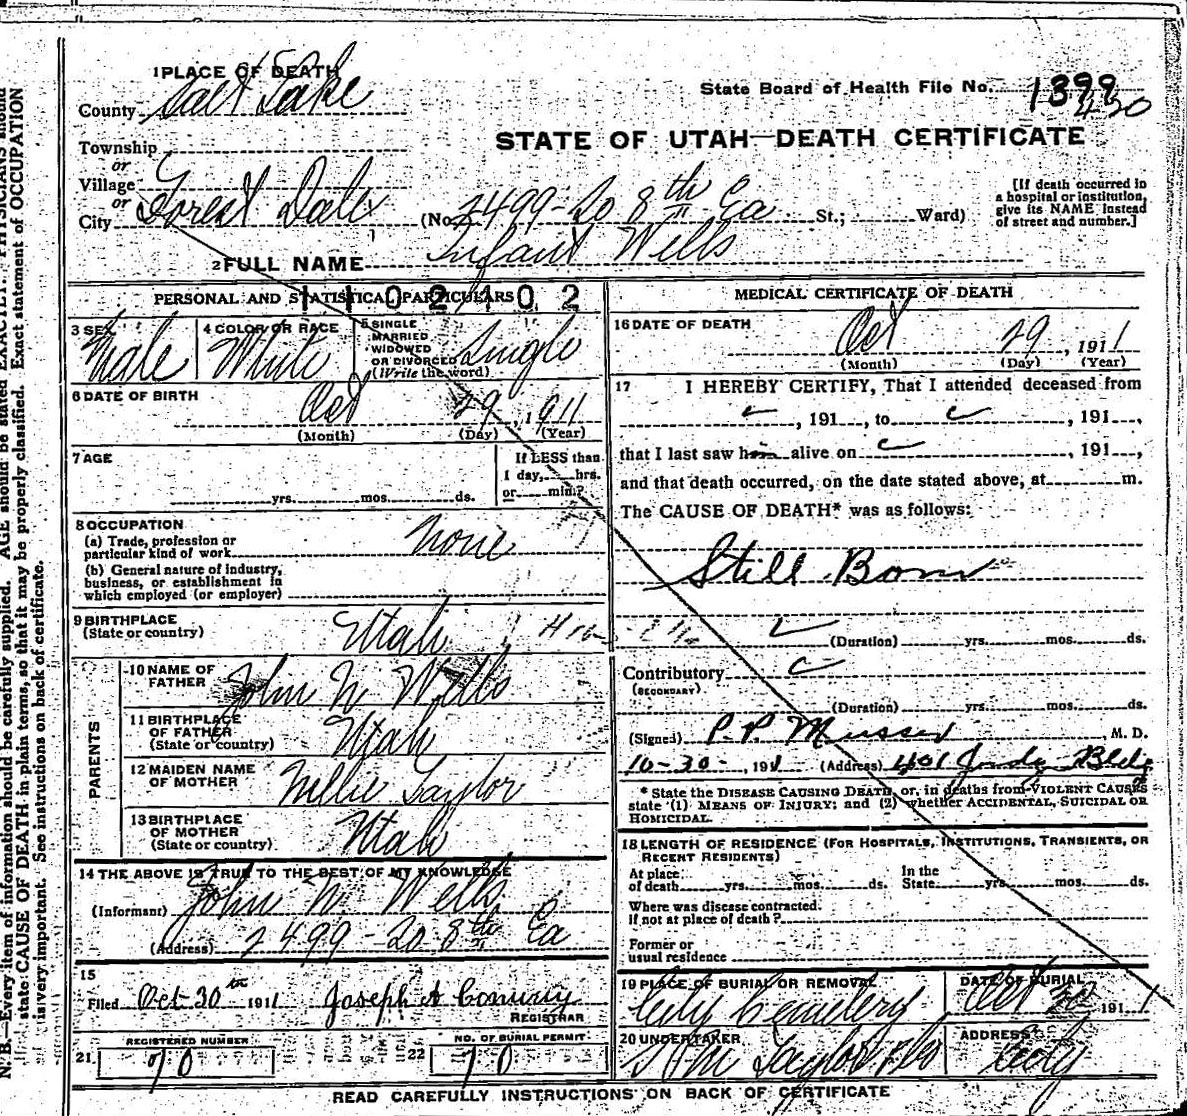 1 PLACE OF DEATH
County Salt Lake
State Board of Health File No. 1399
430
STATE OF UTAH—DEATH CERTIFICATE
Township
or
Village
or
City Forest Dale (No. 2499-So 8th Ea St.; Ward)
[If death occurred in
a hospital or institution,
give its NAME instead
of street and number.]
2 FULL NAME Infant Wells
1102402
PERSONAL AND STATISTICAL PARTICULARS
3 SEX Male
4 COLOR OR RACE White
5 SINGLE
MARRIED
WIDOWED
OR DIVORCED
(Write the word) Single
6 DATE OF BIRTH
Oct 29, 1911
(Month) (Day) (Year)
7 AGE
If LESS than
1 day, hrs.
or min.?
yrs. mos. ds.
8 OCCUPATION
(a) Trade, profession or
particular kind of work None
(b) General nature of industry,
business, or establishment in
which employed (or employer)
9 BIRTHPLACE
(State or country) Utah
PARENTS
10 NAME OF
FATHER John W Wells
11 BIRTHPLACE
OF FATHER
(State or country) Utah
12 MAIDEN NAME
OF MOTHER Nellie Taylor
13 BIRTHPLACE
OF MOTHER
(State or country) Utah
14 THE ABOVE IS TRUE TO THE BEST OF MY KNOWLEDGE
(Informant) John W Wells
(Address) 2499-So 8th Ea
15
Filed Oct-30th 1911 Joseph A Conway
REGISTRAR
21 REGISTERED NUMBER
70
22 NO. OF BURIAL PERMIT
70
MEDICAL CERTIFICATE OF DEATH
16 DATE OF DEATH
Oct 29, 1911
(Month) (Day) (Year)
17 I HEREBY CERTIFY, That I attended deceased from
, 191 , to , 191 ,
that I last saw him alive on , 191 ,
and that death occurred, on the date stated above, at m.
The CAUSE OF DEATH* was as follows:
Still Born
(Duration) yrs. mos. ds.
Contributory
(SECONDARY)
(Duration) yrs. mos. ds.
(Signed) P. P. Musser, M. D.
10-30-, 1911 (Address) 401 Judge Bldg
* State the DISEASE CAUSING DEATH, or, in deaths from VIOLENT CAUSES
state (1) MEANS OF INJURY; and (2) whether ACCIDENTAL, SUICIDAL OR
HOMICIDAL.
18 LENGTH OF RESIDENCE (FOR HOSPITALS, INSTITUTIONS, TRANSIENTS, OR
RECENT RESIDENTS)
At place
of death yrs. mos. ds.
In the
State yrs. mos. ds.
Where was disease contracted.
if not at place of death?
Former or
usual residence
19 PLACE OF BURIAL OR REMOVAL
City Cemetery
DATE OF BURIAL
Oct 30 1911
20 UNDERTAKER
S M Taylor & Co
ADDRESS
City
READ CAREFULLY INSTRUCTIONS ON BACK OF CERTIFICATE
N. B.—Every item of information should be carefully supplied. AGE should be stated EXACTLY. PHYSICIANS should
state CAUSE OF DEATH in plain terms, so that it may be properly classified. Exact statement of OCCUPATION
is very important. See instructions on back of certificate.